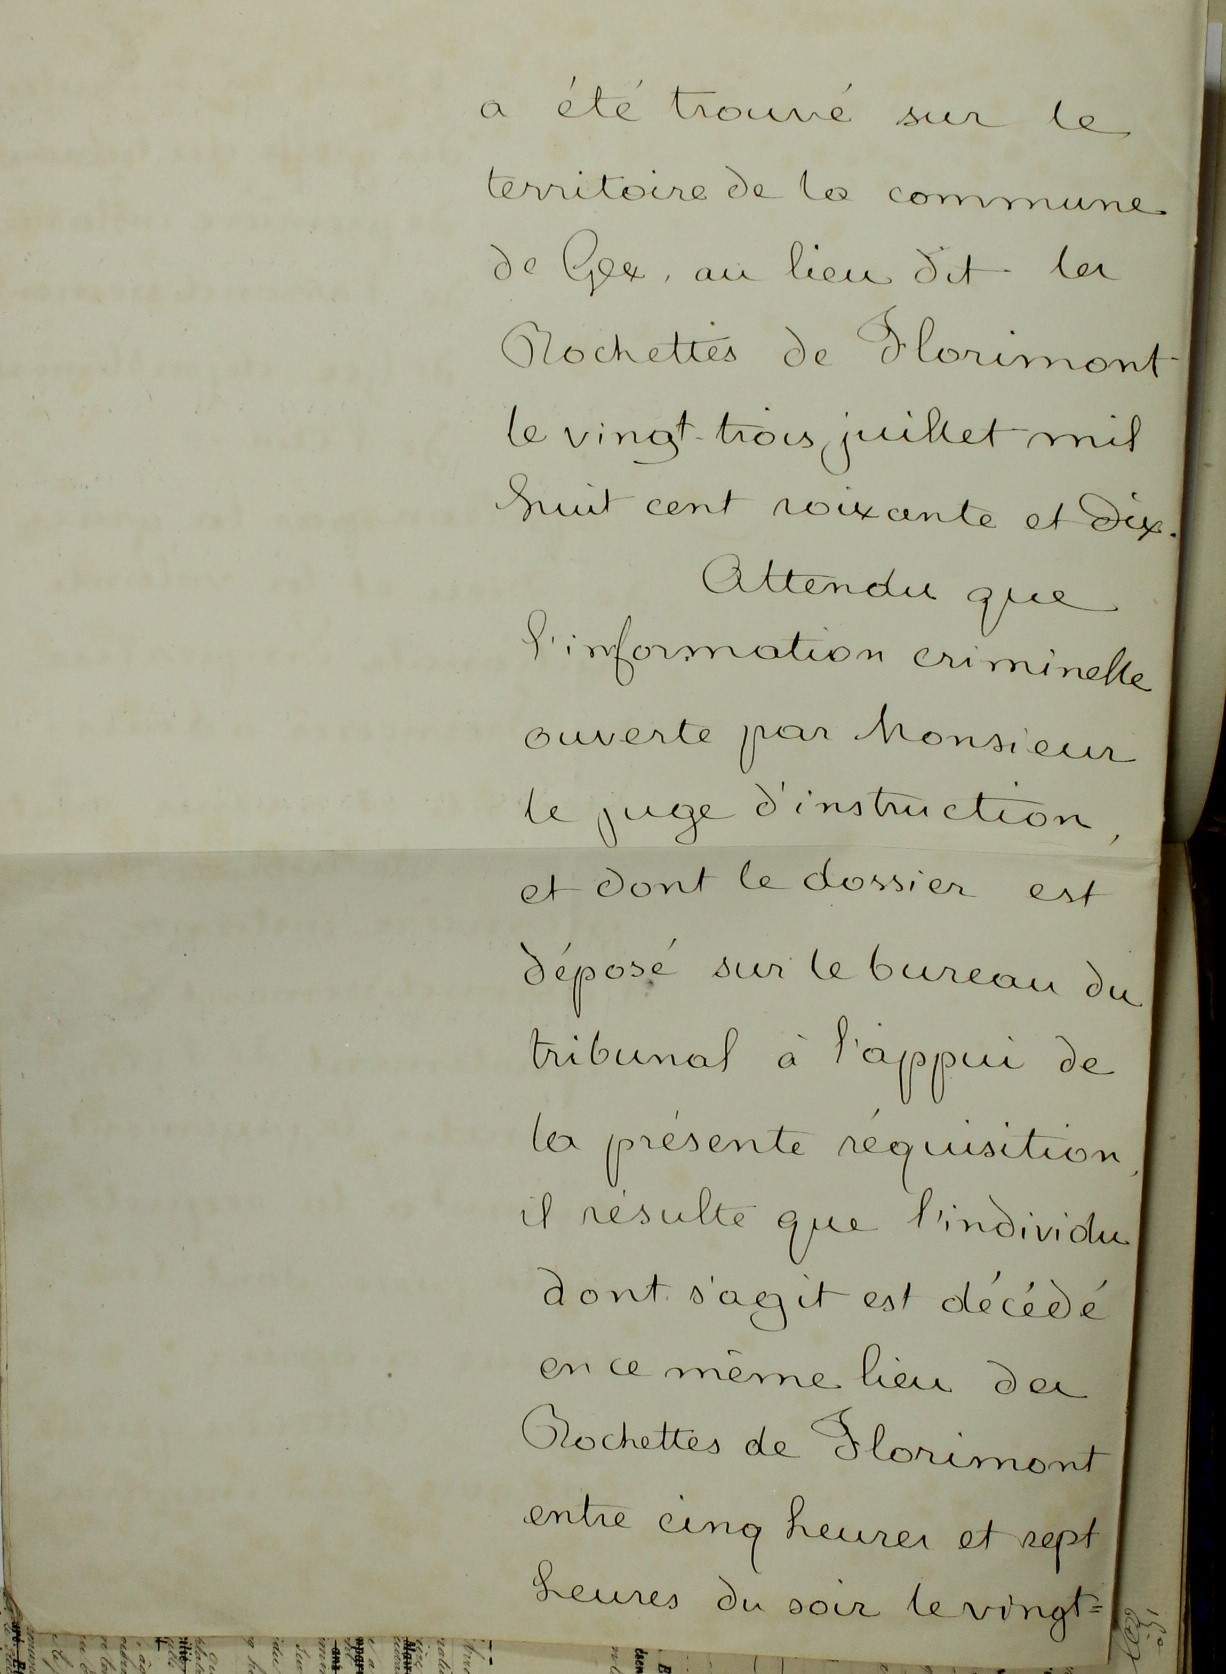 a été trouvé sur le
territoire de la commune
de Gex, au lieu dit les
Rochettes de Florimont
le vingt-trois juillet mil
huit cent soixante et dix.
Attendu que
l'information criminelle
ouverte par Monsieur
le juge d'instruction,
et dont le dossier est
déposé sur le bureau du
tribunal à l'appui de
la présente réquisition,
il résulte que l'individu
dont s'agit est décédé
en ce même lieu des
Rochettes de Florimont
entre cinq heures et sept
heures du soir le vingt=